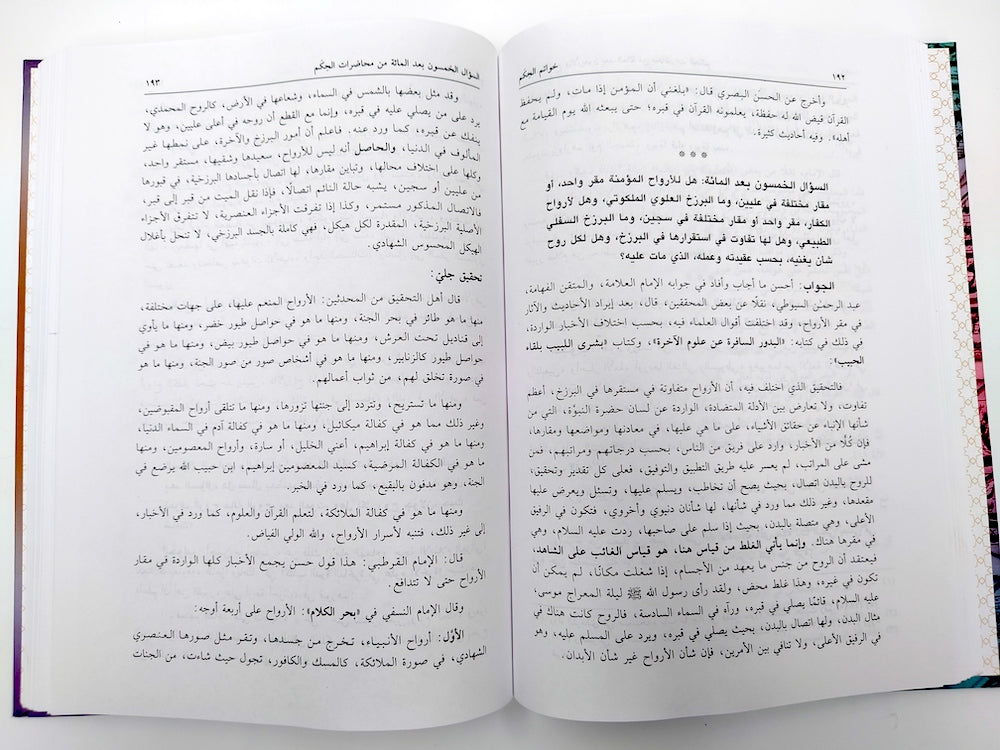 ١٩٢
خواتم الحكم
وأخرج عن الحسن البصري قال: «بلغني أن المؤمن إذا مات، ولم يحفظ
القرآن قيض الله له حفظة، يعلمونه القرآن في قبره؛ حتى يبعثه الله يوم القيامة مع
أهله». وفيه أحاديث كثيرة.
* * *
السؤال الخمسون بعد المائة: هل للأرواح المؤمنة مقر واحد، أو
مقار مختلفة في عليين، وما البرزخ العلوي الملكوتي، وهل لأرواح
الكفار، مقر واحد أو مقار مختلفة في سجين، وما البرزخ السفلي
الطبيعي، وهل لها تفاوت في استقرارها في البرزخ، وهل لكل روح
شأن يغنيه، بحسب عقيدته وعمله، الذي مات عليه؟
الجواب: أحسن ما أجاب وأفاد في جوابه الإمام العلامة، والمتقن الفهامة،
عبد الرحمٰن السيوطي، نقلًا عن بعض المحققين، قال، بعد إيراد الأحاديث والآثار
في مقر الأرواح، وقد اختلفت أقوال العلماء فيه، بحسب اختلاف الأخبار الواردة،
في ذلك في كتابه: «البدور السافرة عن علوم الآخرة»، وكتاب «بشرى اللبيب بلقاء
الحبيب»:
فالتحقيق الذي اختلف فيه، أن الأرواح متفاوتة في مستقرها في البرزخ، أعظم
تفاوت، ولا تعارض بين الأدلة المتضادة، الواردة عن لسان حضرة النبوّة، التي من
شأنها الإنباء عن حقائق الأشياء، على ما هي عليها، في معادنها ومواضعها ومقارها،
فإن كُلًّا من الأخبار، وارد على فريق من الناس، بحسب درجاتهم ومراتبهم، فمن
مشى على المراتب، لم يعسر عليه طريق التطبيق والتوفيق، فعلى كل تقدير وتحقيق،
للروح بالبدن اتصال، بحيث يصح أن تخاطب، ويسلم عليها، وتسئل ويعرض عليها
مقعدها، وغير ذلك مما ورد في شأنها، لها شأنان دنيوي وأخروي، فتكون في الرفيق
الأعلى، وهي متصلة بالبدن، بحيث إذا سلم على صاحبها، ردت عليه السلام، وهي
في مقرها هناك. وإنما يأتي الغلط من قياس هنا، هو قياس الغائب على الشاهد،
فيعتقد أن الروح من جنس ما يعهد من الأجسام، إذا شغلت مكانًا، لم يمكن أن
تكون في غيره، وهذا غلط محض، ولقد رأى رسول الله ﷺ ليلة المعراج موسى،
عليه السلام، قائمًا يصلي في قبره، ورآه في السماء السادسة، فالروح كانت هناك في
مثال البدن، ولها اتصال بالبدن، بحيث يصلي في قبره، ويرد على المسلم عليه، وهو
في الرفيق الأعلى، ولا تنافي بين الأمرين، فإن شأن الأرواح غير شأن الأبدان.
السؤال الخمسون بعد المائة من محاضرات الحِكَم
١٩٣
وقد مثل بعضها بالشمس في السماء، وشعاعها في الأرض، كالروح المحمدي،
يرد على من يصلي عليه في قبره، وإنما مع القطع أن روحه في أعلى عليين، وهو لا
ينفك عن قبره، كما ورد عنه. فاعلم أن أمور البرزخ والآخرة، على نمطها غير
المألوف في الدنيا، والحاصل أنه ليس للأرواح، سعيدها وشقيها، مستقر واحد،
وكلها على اختلاف محالها، وتباين مقارها، لها اتصال بأجسادها البرزخية، في قبورها
من عليين أو سجين، يشبه حالة النائم اتصالًا، فإذا نقل الميت من قبر إلى قبر،
فالاتصال المذكور مستمر، وكذا إذا تفرقت الأجزاء العنصرية، لا تتفرق الأجزاء
الأصلية البرزخية، المقدرة لكل هيكل، فهي كاملة بالجسد البرزخي، لا تنحل بأغلال
الهيكل المحسوس الشهادي.
تحقيق جليّ:
قال أهل التحقيق من المحدثين: الأرواح المنعم عليها، على جهات مختلفة،
منها ما هو طائر في بحر الجنة، ومنها ما هو في حواصل طيور خضر، ومنها ما يأوي
إلى قناديل تحت العرش، ومنها ما هو في حواصل طيور بيض، ومنها ما هو في
حواصل طيور كالزنابير، ومنها ما هو في أشخاص صور من صور الجنة، ومنها ما هو
في صورة تخلق لهم، من ثواب أعمالهم.
ومنها ما تستريح، وتتردد إلى جنتها تزورها، ومنها ما تتلقى أرواح المقبوضين،
وغير ذلك مما هو في كفالة ميكائيل، ومنها ما هو في كفالة آدم في السماء الدنيا،
ومنها ما هو في كفالة إبراهيم، أعني الخليل، أو سارة، وأرواح المعصومين، ومنها
ما هو في الكفالة المرضية، كسيد المعصومين إبراهيم، ابن حبيب الله يرضع في
الجنة، وهو مدفون بالبقيع، كما ورد في الخبر.
ومنها ما هو في كفالة الملائكة، لتعلم القرآن والعلوم، كما ورد في الأخبار،
إلى غير ذلك، فتنبه لأسرار الأرواح، والله الولي الفياض.
قال: الإمام القرطبي: هذا قول حسن يجمع الأخبار كلها الواردة في مقار
الأرواح حتى لا تتدافع.
وقال الإمام النسفي في «بحر الكلام»: الأرواح على أربعة أوجه:
الأوّل: أرواح الأنبياء، تخرج من جسدها، وتقر مثل صورها العنصري
الشهادي، في صورة الملائكة، كالمسك والكافور، تجول حيث شاءت، من الجنات